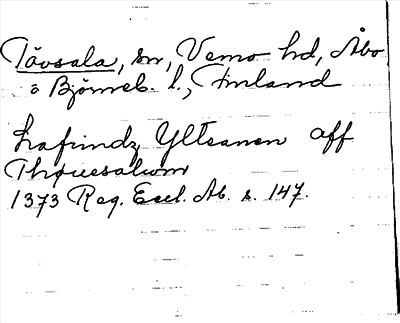 Tövsala, sn, Vemo hd, Åbo
o Björneb. l., Finland
Lafrindz Yltsanen aff
Thøuesalum
1373 Reg. Eccl. Ab. s. 147.